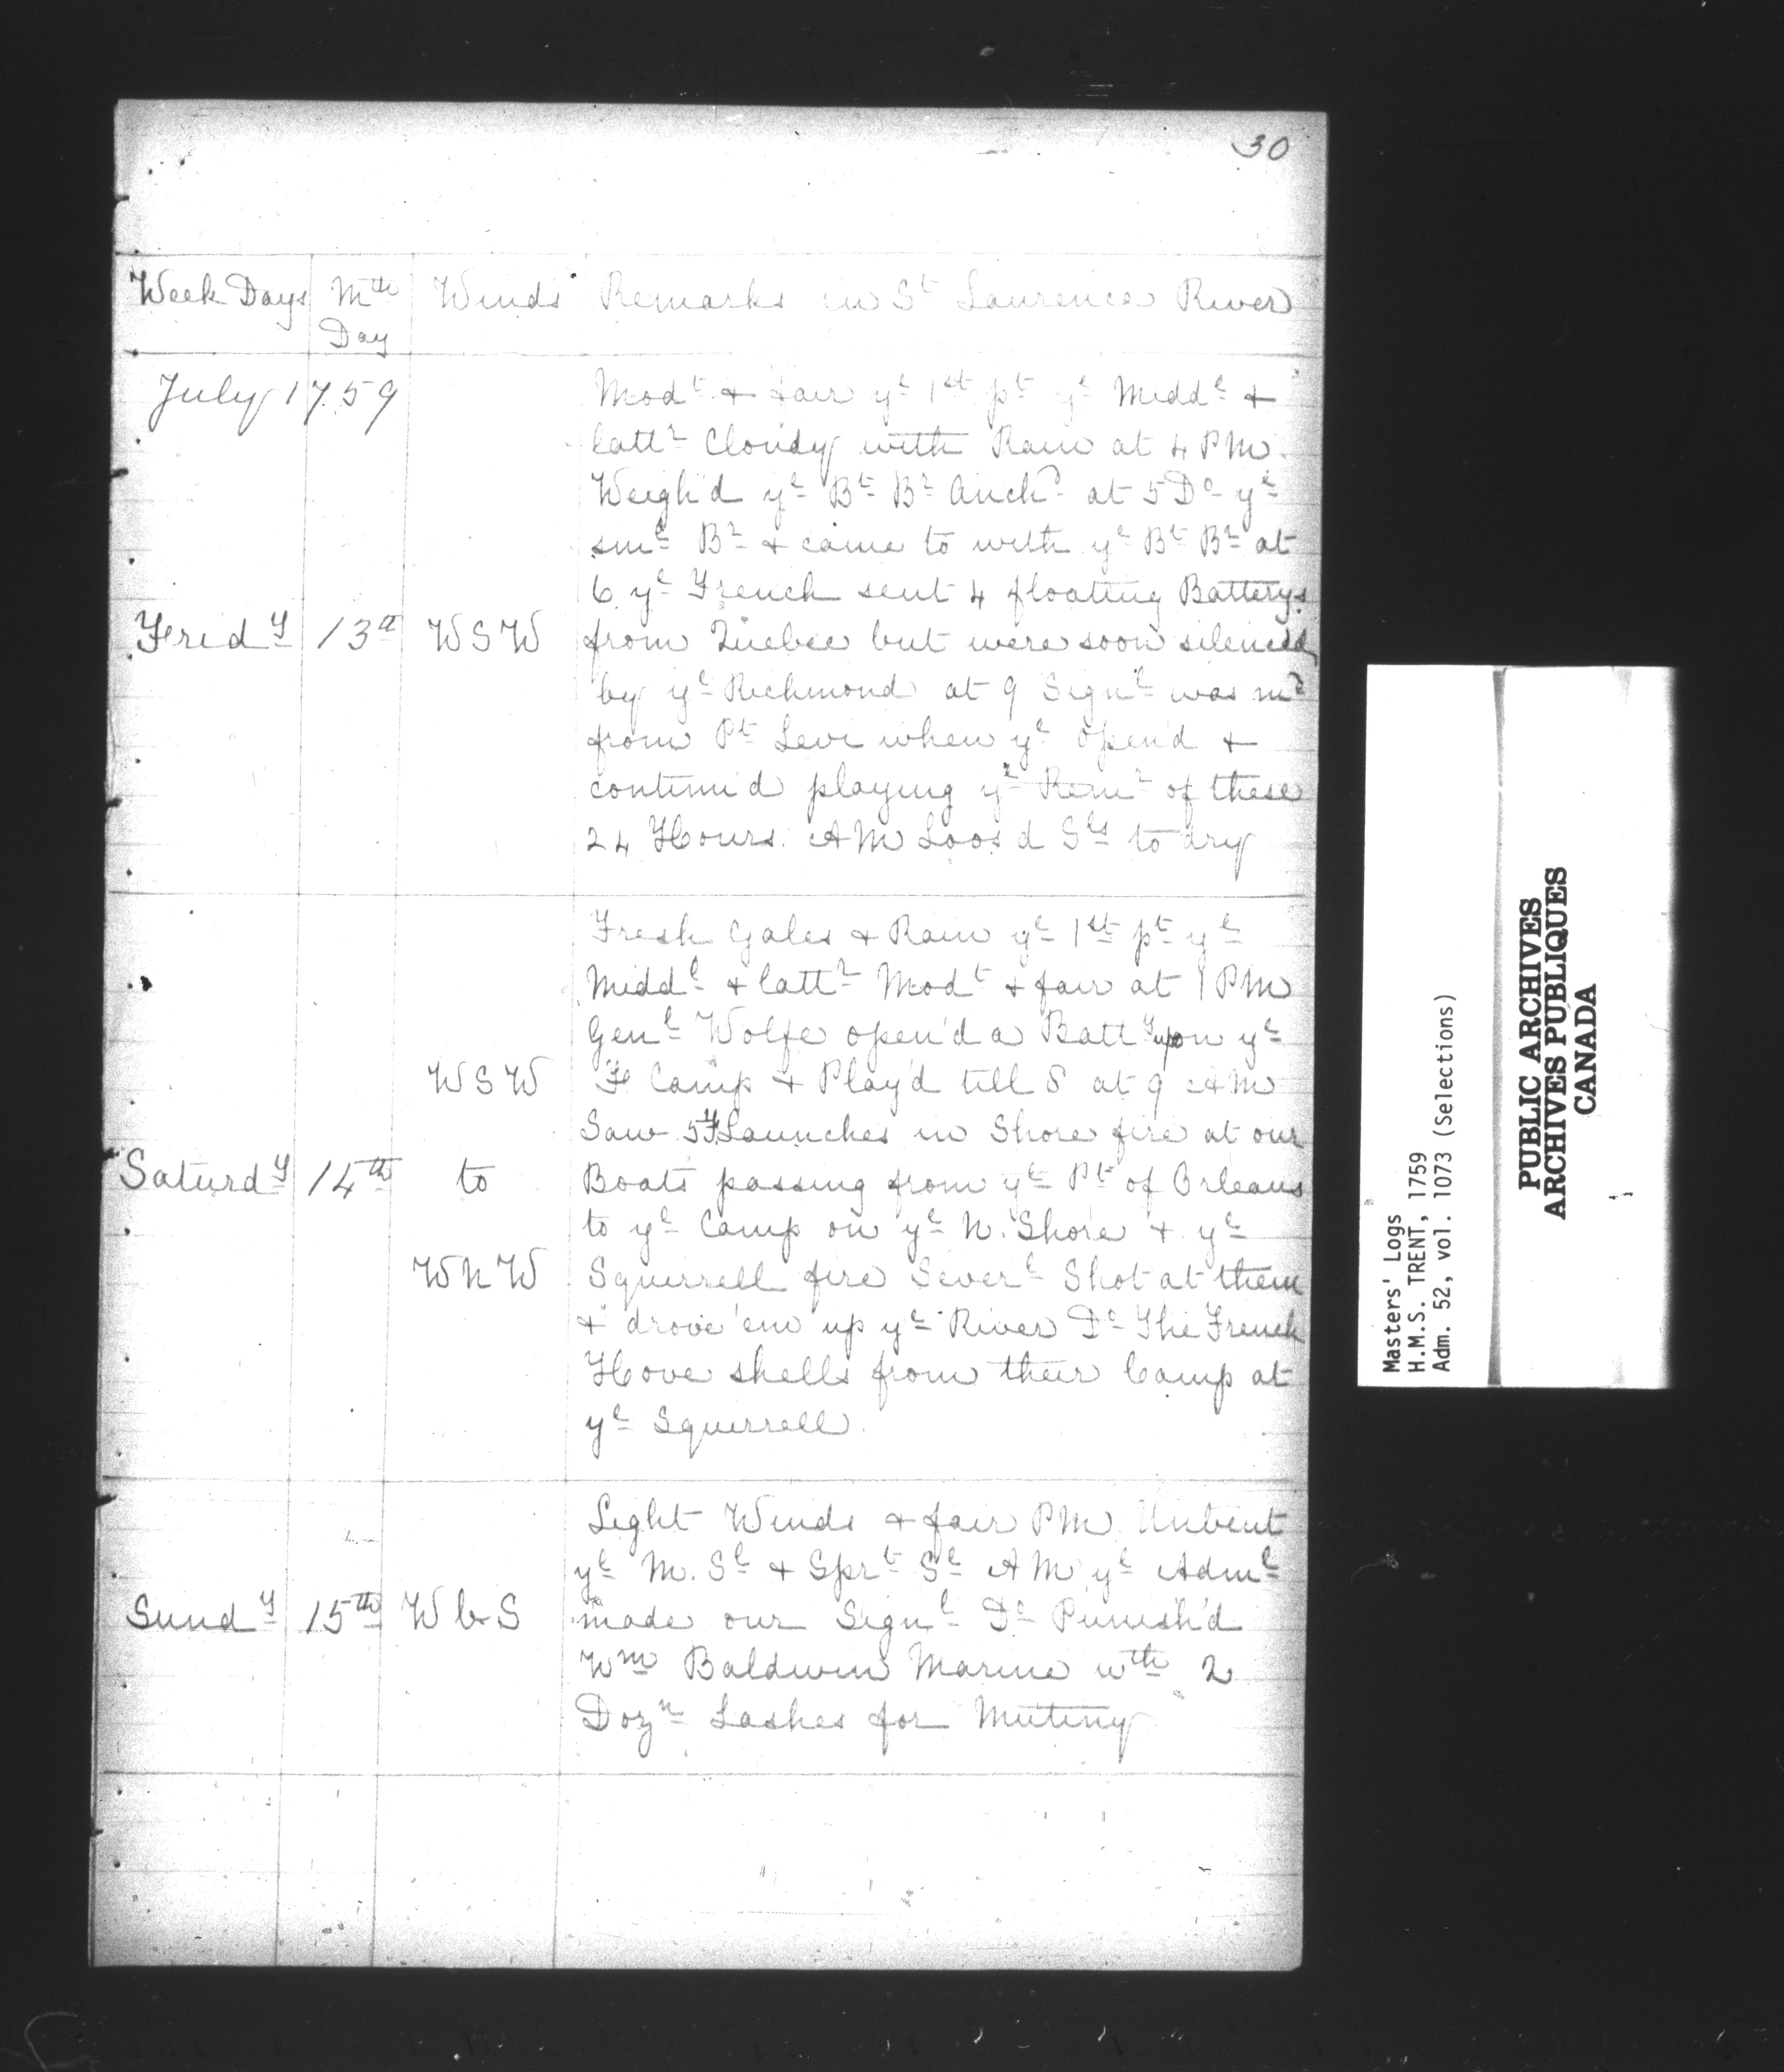 30
Week Days Mth Day Winds Remarks in St Laurence River
July 1759
Modt & fair ye 1st pt ye Middle &
lattr Cloudy with Rain at 4 PM
Weigh'd ye Bt Br Anchr at 5 Do ye
sme Br & came to with ye Bt Br at
6 ye French sent 4 floating Batterys
Fridy 13th WSW from Quebec but were soon silenced
by ye Richmond at 9 Signl was md
from Pt Levi when ye open'd &
continu'd playing ye Remr of these
24 Hours. AM Loos'd Sls to dry
Fresh Gales & Rain ye 1st pt ye
Middl & lattr Modt & fair at 1 PM
Genl Wolfe open'd a Batty upon ye
WSW F Camp & Play'd till 8 at 9 AM
Saw 5 F Launches in Shore fire at our
Saturdy 14th to Boats passing from ye Pt of Orleans
to ye Camp on ye N. Shore & ye
WNW Squirrell fire Severl Shot at them
& drove 'em up ye River Do The French
Hove shells from their Camp at
ye Squirrell.
Light Winds & fair PM Unbent
ye M. Sl & Sprt Sl AM ye Adml
Sundy 15th W b S made our Signl Do Punish'd
Wm Baldwin Marine wth 2
Dozn Lashes for Mutiny
Masters' Logs
H.M.S. TRENT, 1759
Adm. 52, vol. 1073 (Selections)
PUBLIC ARCHIVES
ARCHIVES PUBLIQUES
CANADA